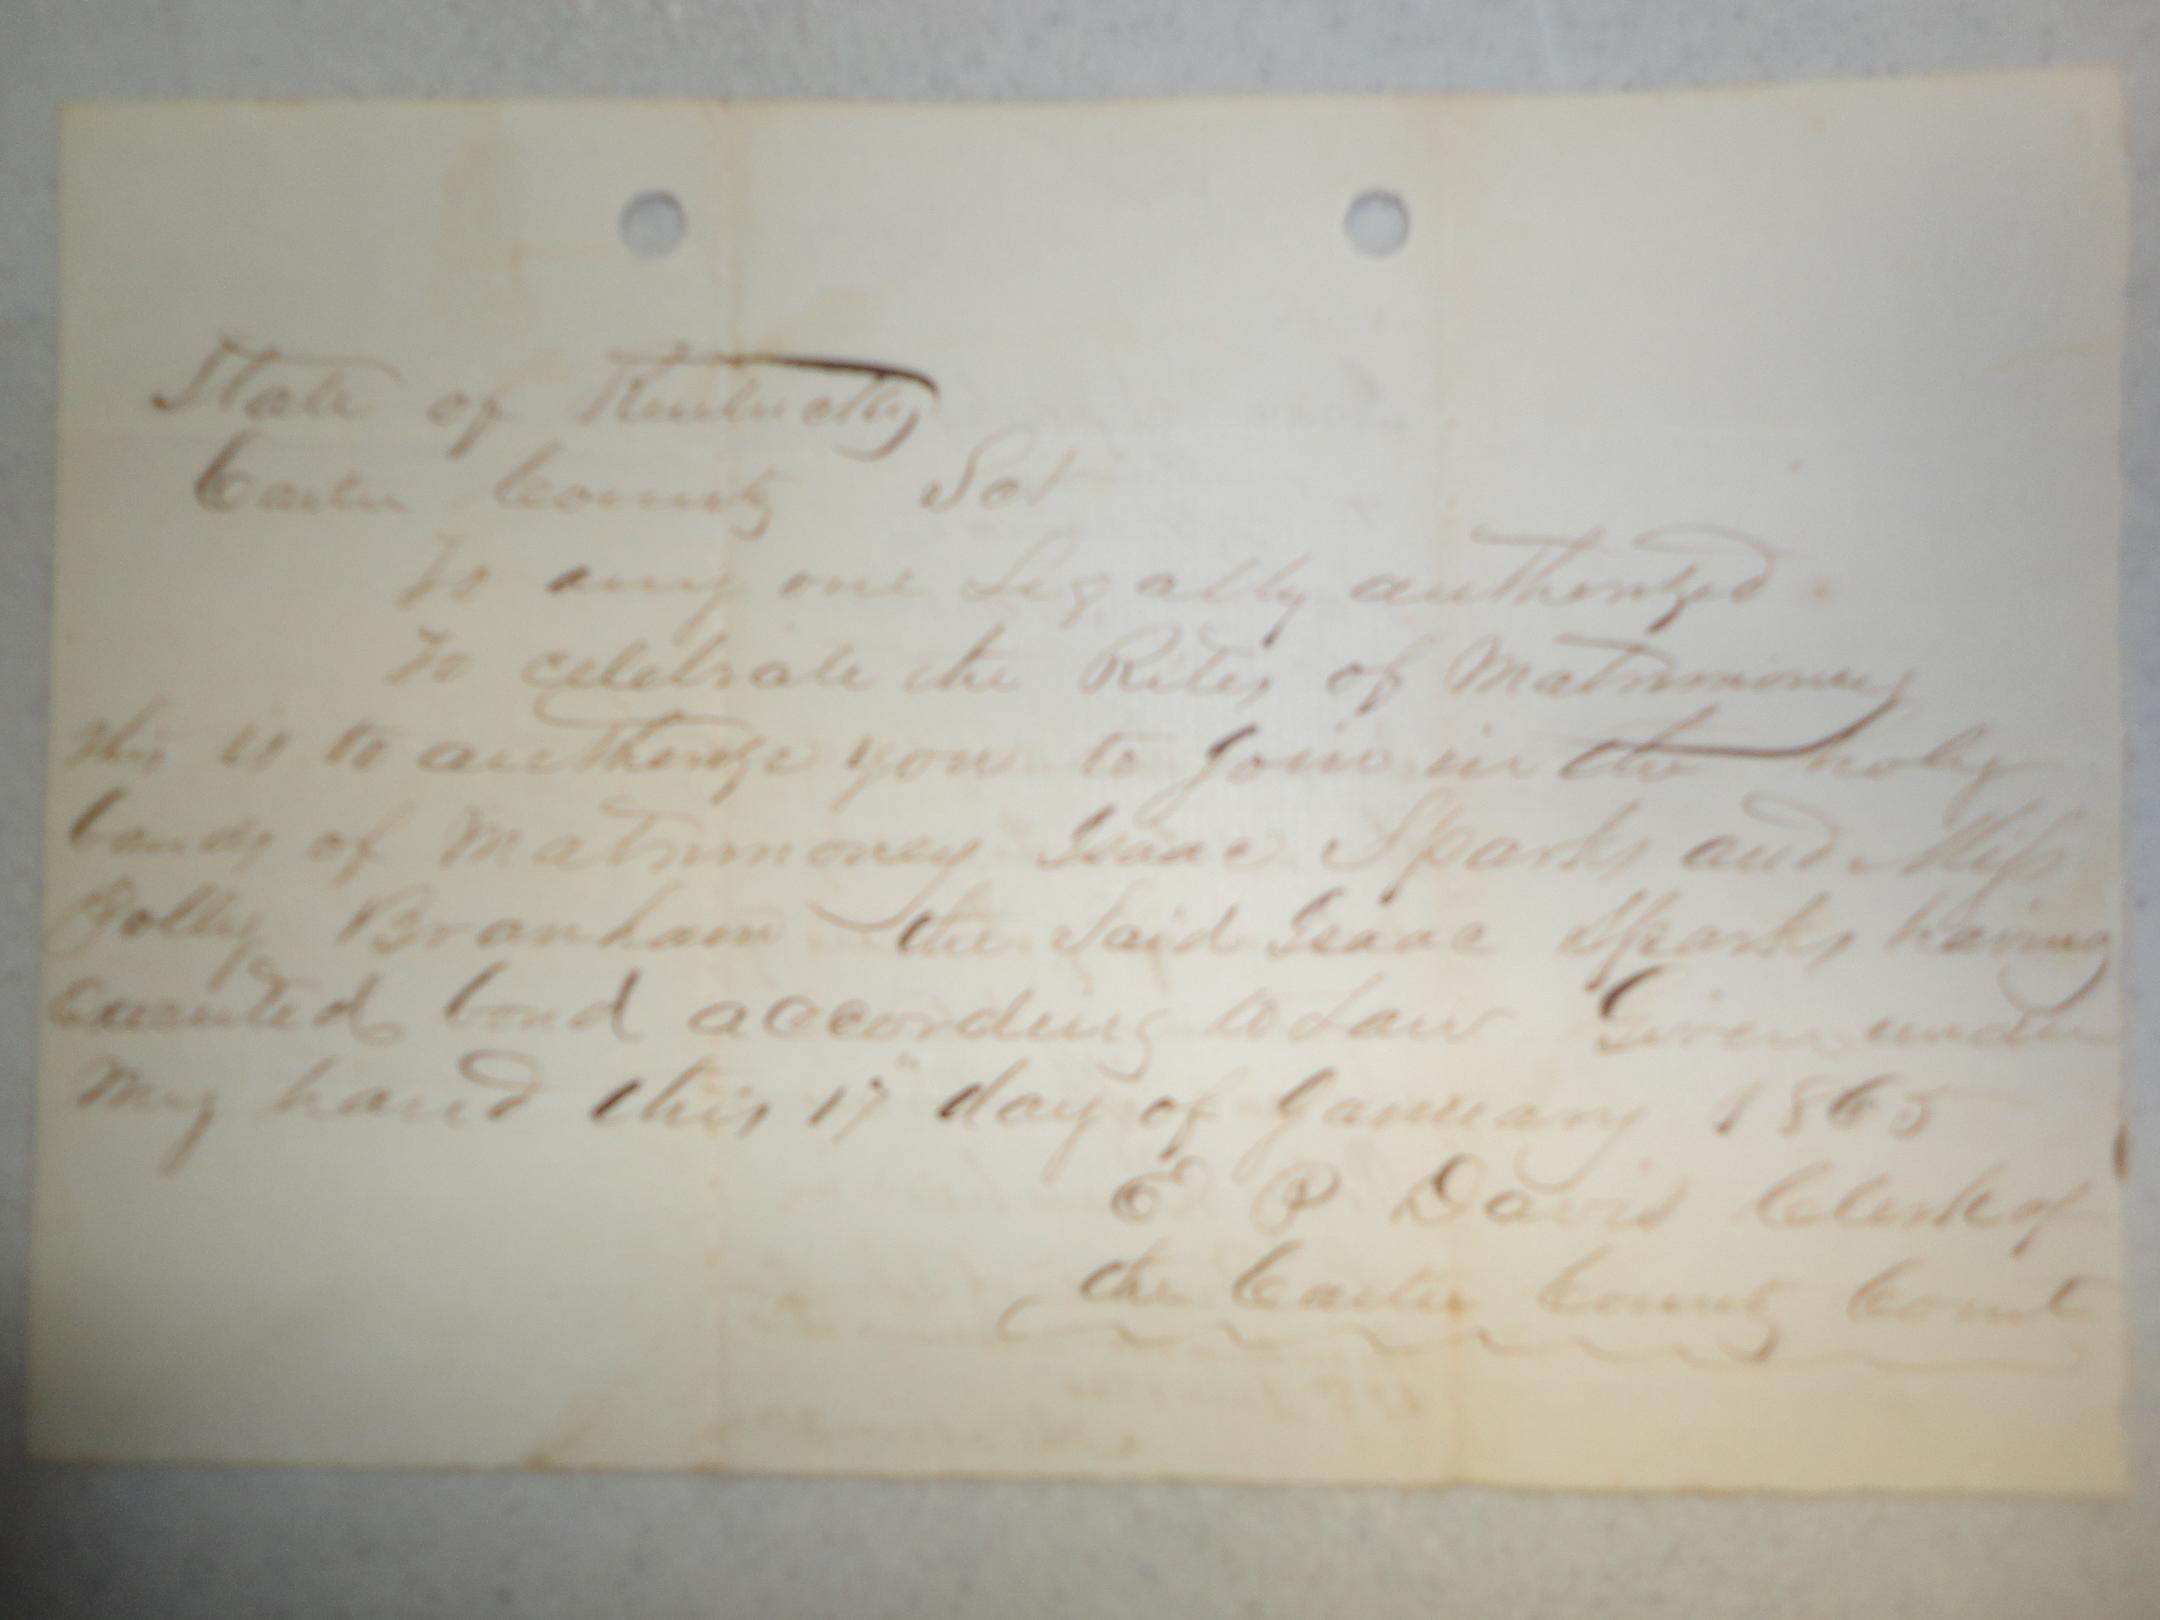 State of Kentucky
Carter County Sct
To any one Legally authorized
To celebrate the Rites of Matrimoney
this is to authorize you to Join in the holy
bands of Matrimoney Isaac Sparks and Miss
Polly Branham the Said Isaac Sparks having
executed bond according to Law Given under
My hand this 17" day of January 1865
E P Davis Clerk of
the Carter County Court